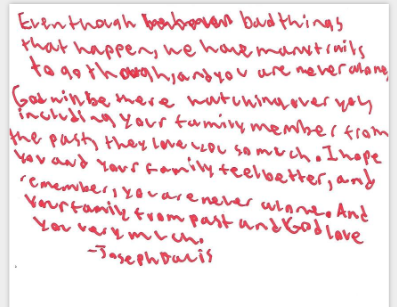 Even though bad things
that happen, we have many trails
to go though, and you are never alone,
God will be there watching over you
including your family member from
the past, they love you so much. I hope
you and your family feel better, and
remember, you are never alone. And
your family from past and God love
you very much.
-Joseph Davis